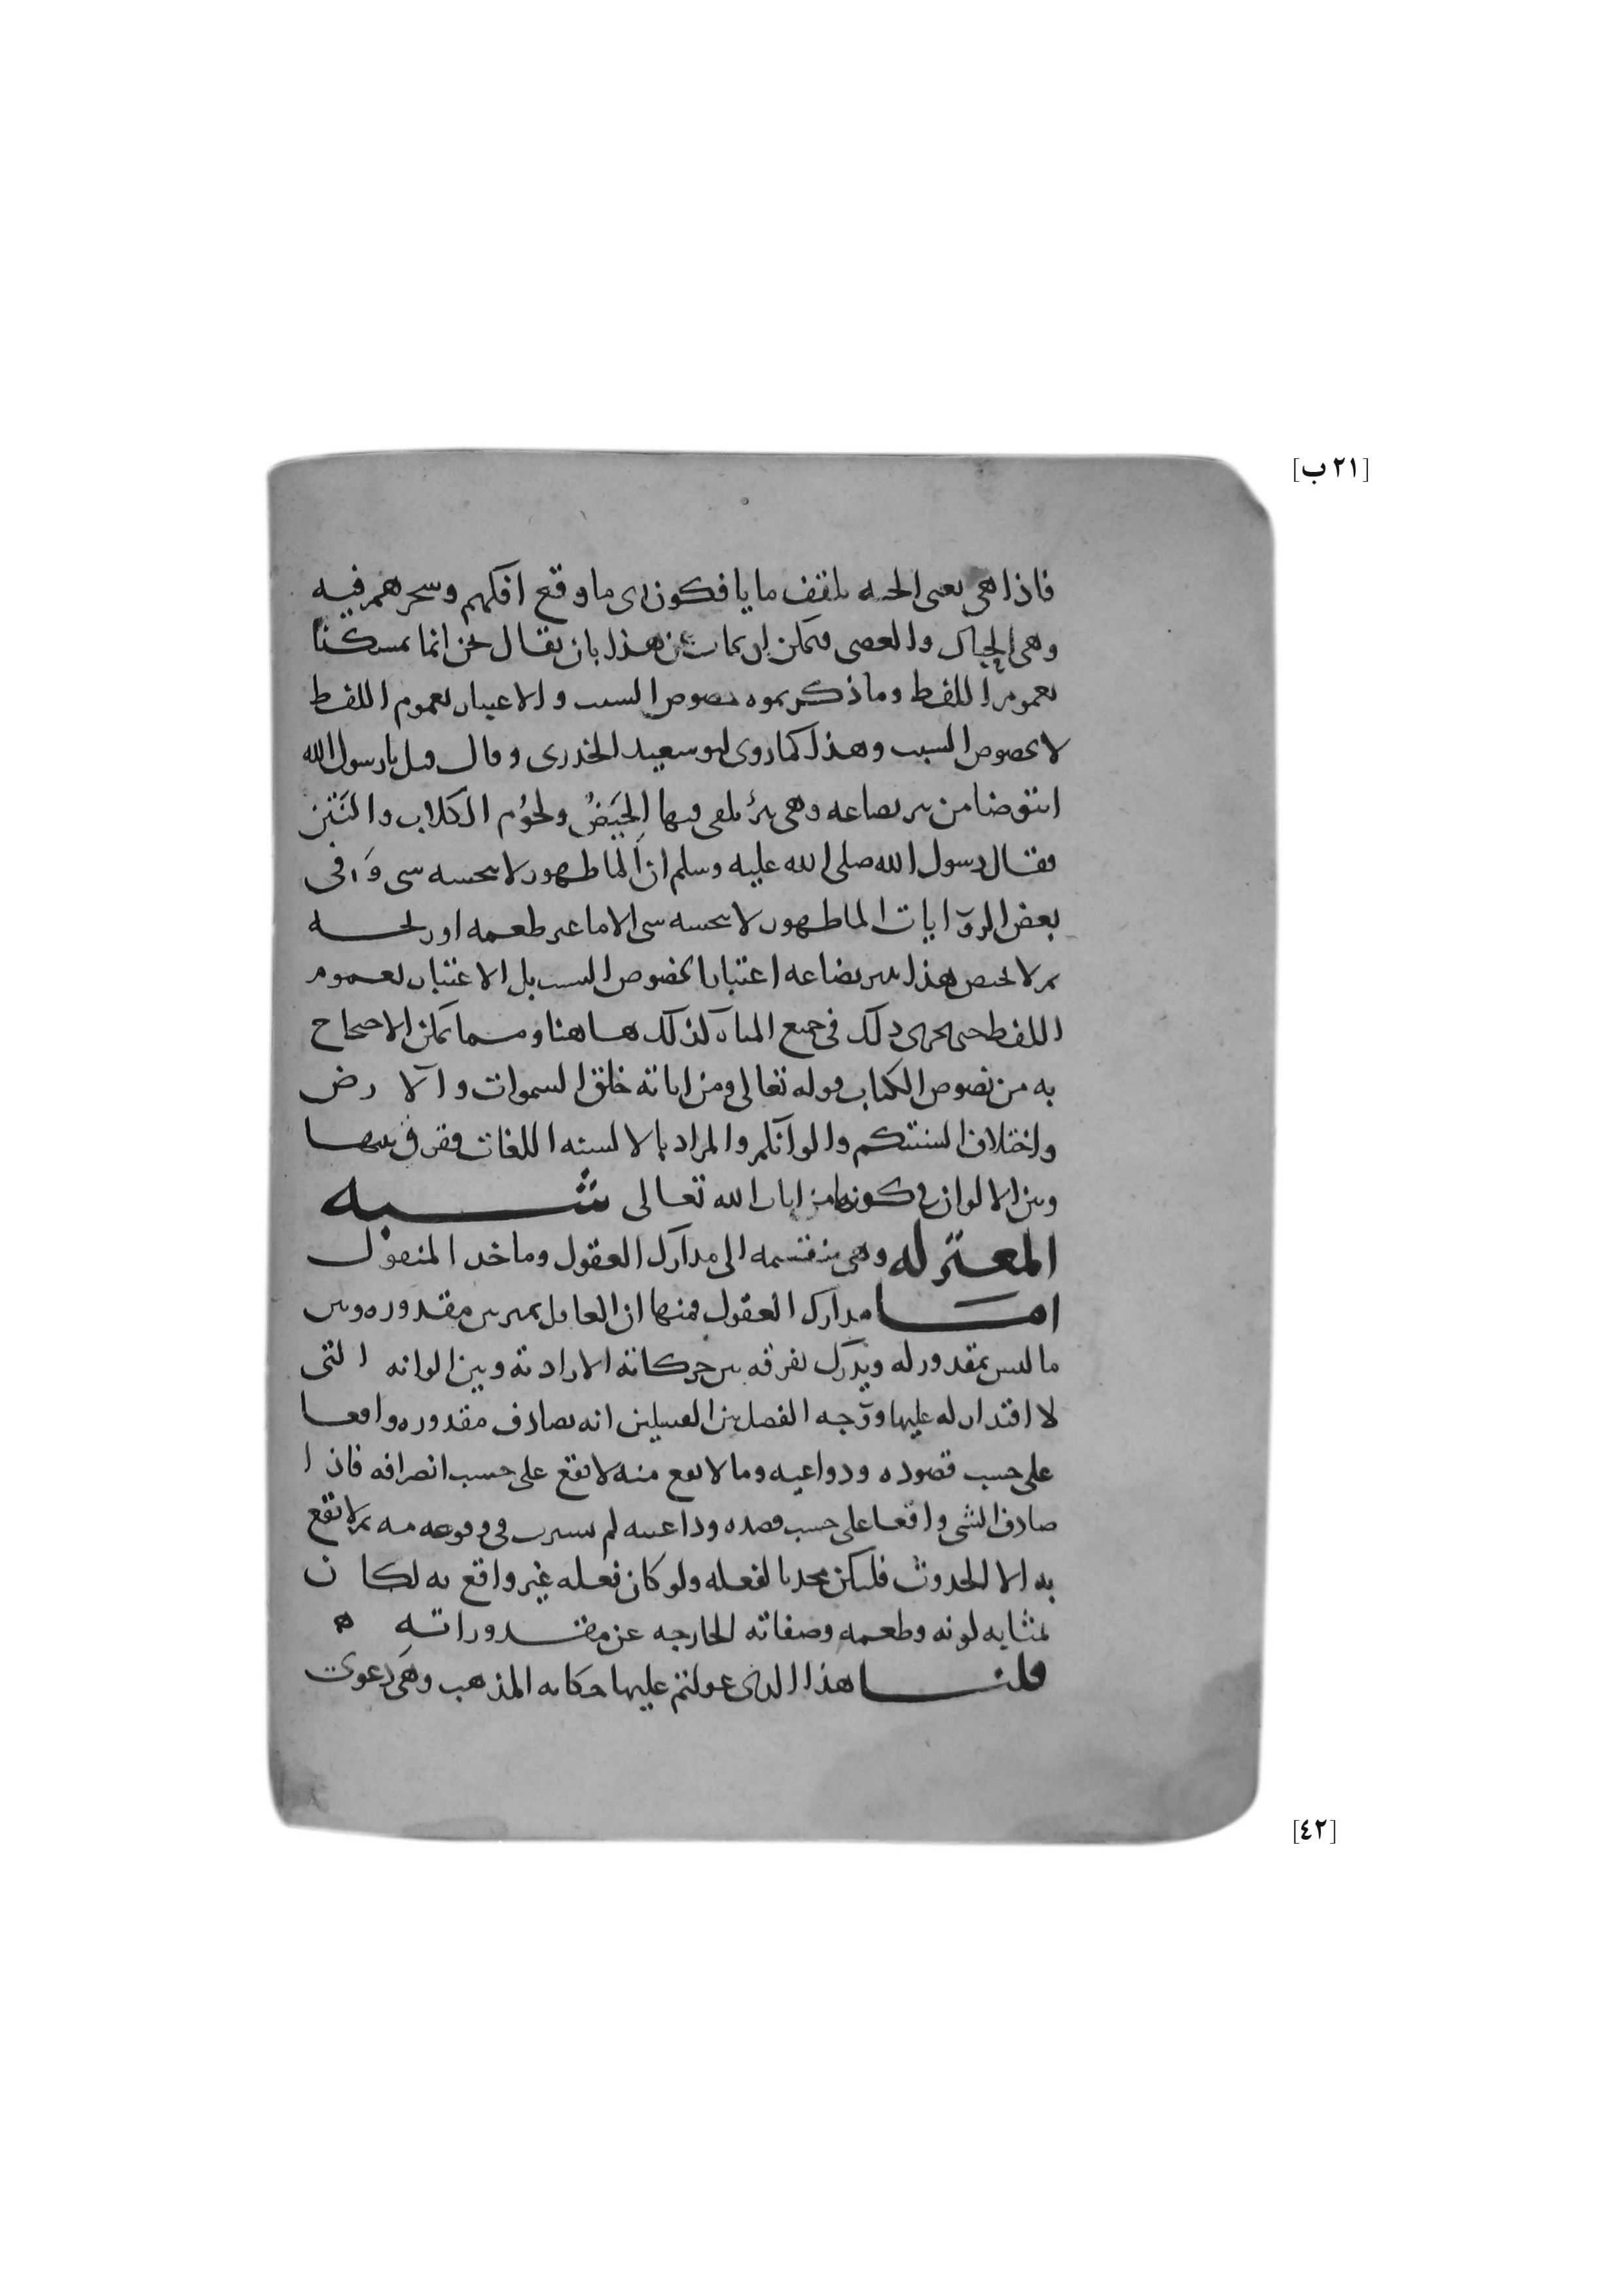 [٢١ ب]
فاذا هي يعني الحية تلقف ما يافكون اى ما وقع افكهم وسحرهم فيه
وهي الحبال والعصى فيمكن ان يجاب عن هذا بان يقال نحن انما تمسكنا
بعموم اللفظ وما ذكرتموه خصوص السبب والاعتبار بعموم اللفظ
لا بخصوص السبب وهذا كما روى ابو سعيد الخدرى وقال قيل يا رسول الله
انتوضا من بير بضاعه وهي بئر يلقى فيها الحِيَضُ ولحُوم الكلاب والنَتن
فقال رسول الله صلى الله عليه وسلم ان الما طهور لا ينجسه شى وَ فى
بعض الروايات الما طهور لا ينجسه شى الا ما غير طعمه او ريحـــه
ثم لا يختص هذا ببير بضاعه اعتبارا بخصوص السبب بل الاعتبار بعموم
اللفظ حتى يجرى ذلك فى جميع المياه كذلك هاهنا ومما يمكن الاحتجاج
به من نصوص الكتاب قوله تعالى ومن اياته خلق السموات والارض
واختلاف السنتكم والوانكم والمراد بالالسنه اللغات فقرن بينهـا
وبين الالوان فى كونها من ايات الله تعالى شـــبه
المعتزله وهي منقسمه الى مدارك العقول وماخذ المنقول
امــا مدارك العقول فمنها ان العاقل يميز بين مقدوره وبين
ما ليس بمقدور له ويدرك تفرقه بين حركاته الاراديه وبين الوانه التى
لا اقتدار له عليها ووجه الفصل بين القبيلين انه يصادف مقدوره واقعـا
على حسب قصوده ودواعيه وما لا يقع منه لا يقع على حسب انصرافه فاذا
صادف الشى واقعا على حسب قصده وداعيته لم يسترب فى وقوعه منه ثم لا يقع
به الا الحدوث فليكن محدثا لفعله ولو كان فعله غير واقع به لكان
بمثابه لونه وطعمه وصفاته الخارجه عن مقــدوراتهِ ه
قلنــا هذا الذى عولتم عليها حكايه المذهب وهي دعوى
[٤٢]